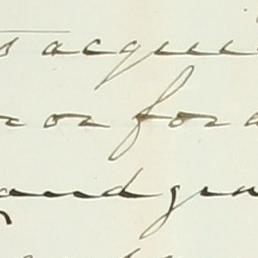 s acqui
or for a
and gra